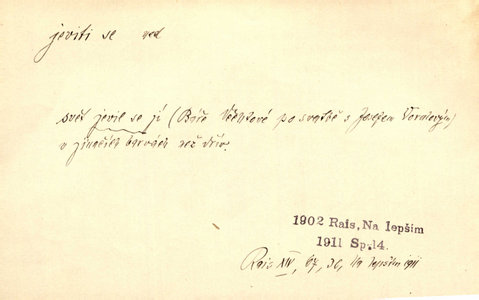 jeviti se ned
svět jevil se jí (Báře Věchtové po svatbě s Josefem
v jinačích barvách než dřív.
1902 Rais, Na lepším
1911 Sp.14.
Rais XIV, 67, 3c, Na lepším 1911